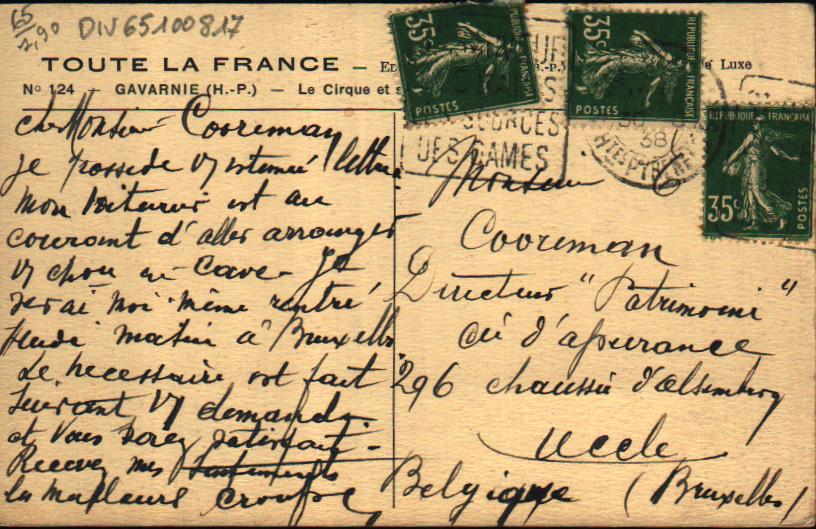 65
7,90
DIV65100817
TOUTE LA FRANCE
Luxe
Nº 124 - GAVARNIE (H.-P.) - Le Cirque et s
35c
POSTES
35c
RÉPUBLIQUE FRANÇAISE
POSTES
35c
RÉPUBLIQUE FRANÇAISE
POSTES
SOURCES
DES GAMES
38
Cher Monsieur Cooreman
je possede Vj estimée lettre
mon voiturier est au
courant d'aller arranger
Vj chou en Cave - Je
serai moi-même rentré
Jeudi matin à Bruxelles
Le necessaire est fait
suivant Vj demande.
et Vous serez satisfait -
Recevez mes
les meilleurs
Monsieur
Cooreman
Directeur "Patrimoine"
Cie d'assurance
296 chaussée d'Alsemberg
Uccle
Belgique (Bruxelles)